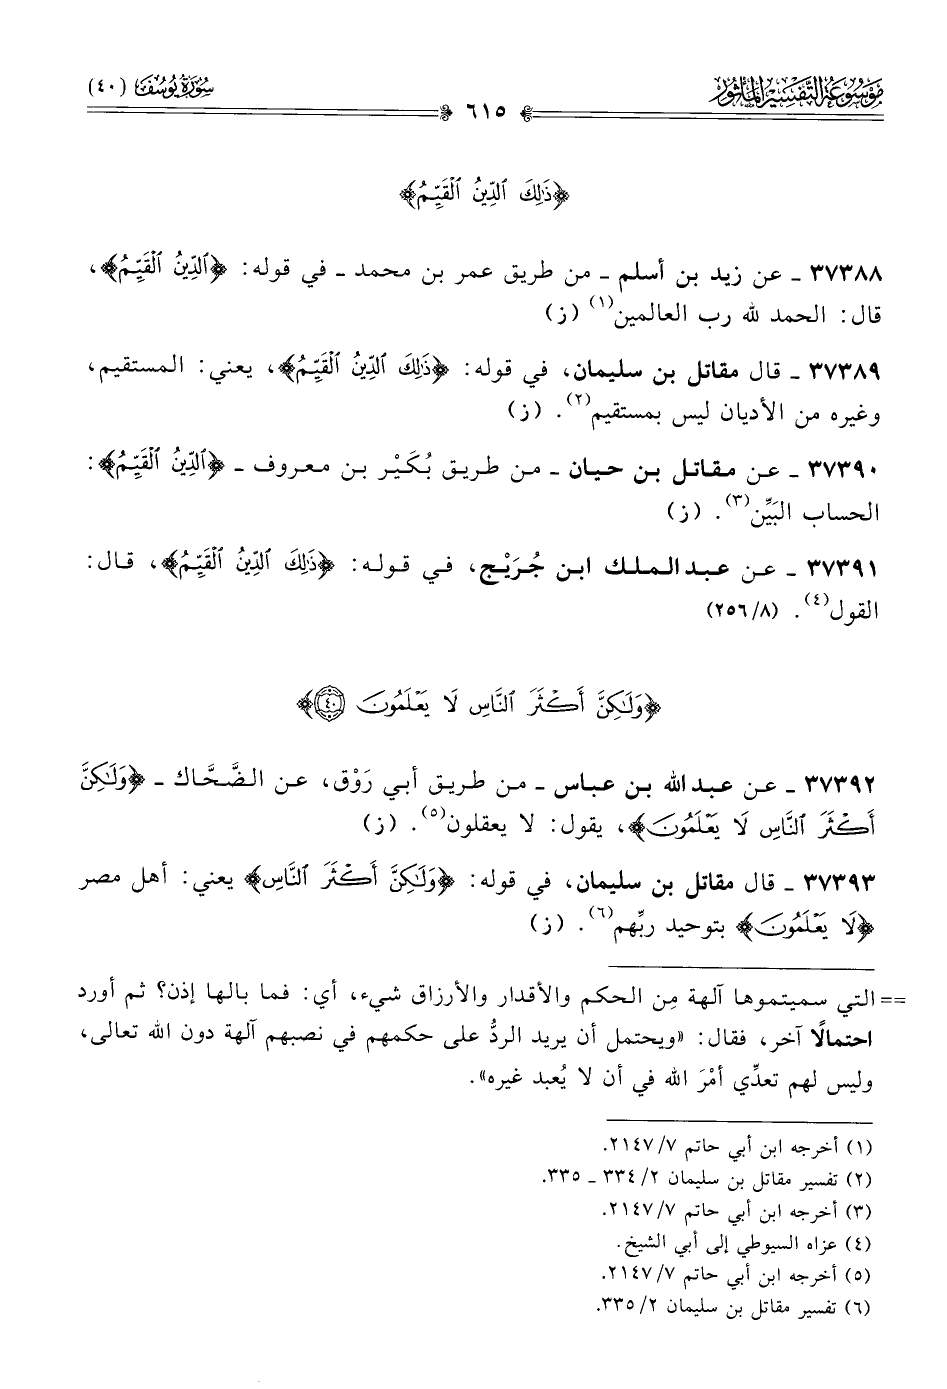 موسوعة التفسير المأثور
سورة يوسف (٤٠)
٦١٥
﴿ذَٰلِكَ ٱلدِّينُ ٱلْقَيِّمُ﴾
٣٧٣٨٨ ـ عن زيد بن أسلم ـ من طريق عمر بن محمد ـ في قوله: ﴿ٱلدِّينُ ٱلْقَيِّمُ﴾،
قال: الحمد لله رب العالمين(١) (ز)
٣٧٣٨٩ ـ قال مقاتل بن سليمان، في قوله: ﴿ذَٰلِكَ ٱلدِّينُ ٱلْقَيِّمُ﴾، يعني: المستقيم،
وغيره من الأديان ليس بمستقيم(٢). (ز)
٣٧٣٩٠ ـ عن مقاتل بن حيان ـ من طريق بُكَيْر بن معروف ـ ﴿ٱلدِّينُ ٱلْقَيِّمُ﴾:
الحساب البَيِّن(٣). (ز)
٣٧٣٩١ ـ عن عبد الملك ابن جُرَيْج، في قوله: ﴿ذَٰلِكَ ٱلدِّينُ ٱلْقَيِّمُ﴾، قال:
القول(٤). (٢٥٦/٨)
﴿وَلَٰكِنَّ أَكْثَرَ ٱلنَّاسِ لَا يَعْلَمُونَ ٤٠﴾
٣٧٣٩٢ ـ عن عبد الله بن عباس ـ من طريق أبي رَوْق، عن الضَّحَّاك ـ ﴿وَلَٰكِنَّ
أَكْثَرَ ٱلنَّاسِ لَا يَعْلَمُونَ﴾، يقول: لا يعقلون(٥). (ز)
٣٧٣٩٣ ـ قال مقاتل بن سليمان، في قوله: ﴿وَلَٰكِنَّ أَكْثَرَ ٱلنَّاسِ﴾ يعني: أهل مصر
﴿لَا يَعْلَمُونَ﴾ بتوحيد ربِّهم(٦). (ز)
== التي سميتموها آلهة مِن الحكم والأقدار والأرزاق شيء، أي: فما بالها إذن؟ ثم أورد
احتمالًا آخر، فقال: «ويحتمل أن يريد الردُّ على حكمهم في نصبهم آلهة دون الله تعالى،
وليس لهم تعدِّي أمْرَ الله في أن لا يُعبد غيره».
(١) أخرجه ابن أبي حاتم ٢١٤٧/٧.
(٢) تفسير مقاتل بن سليمان ٣٣٤/٢ ـ ٣٣٥.
(٣) أخرجه ابن أبي حاتم ٢١٤٧/٧.
(٤) عزاه السيوطي إلى أبي الشيخ.
(٥) أخرجه ابن أبي حاتم ٢١٤٧/٧.
(٦) تفسير مقاتل بن سليمان ٣٣٥/٢.